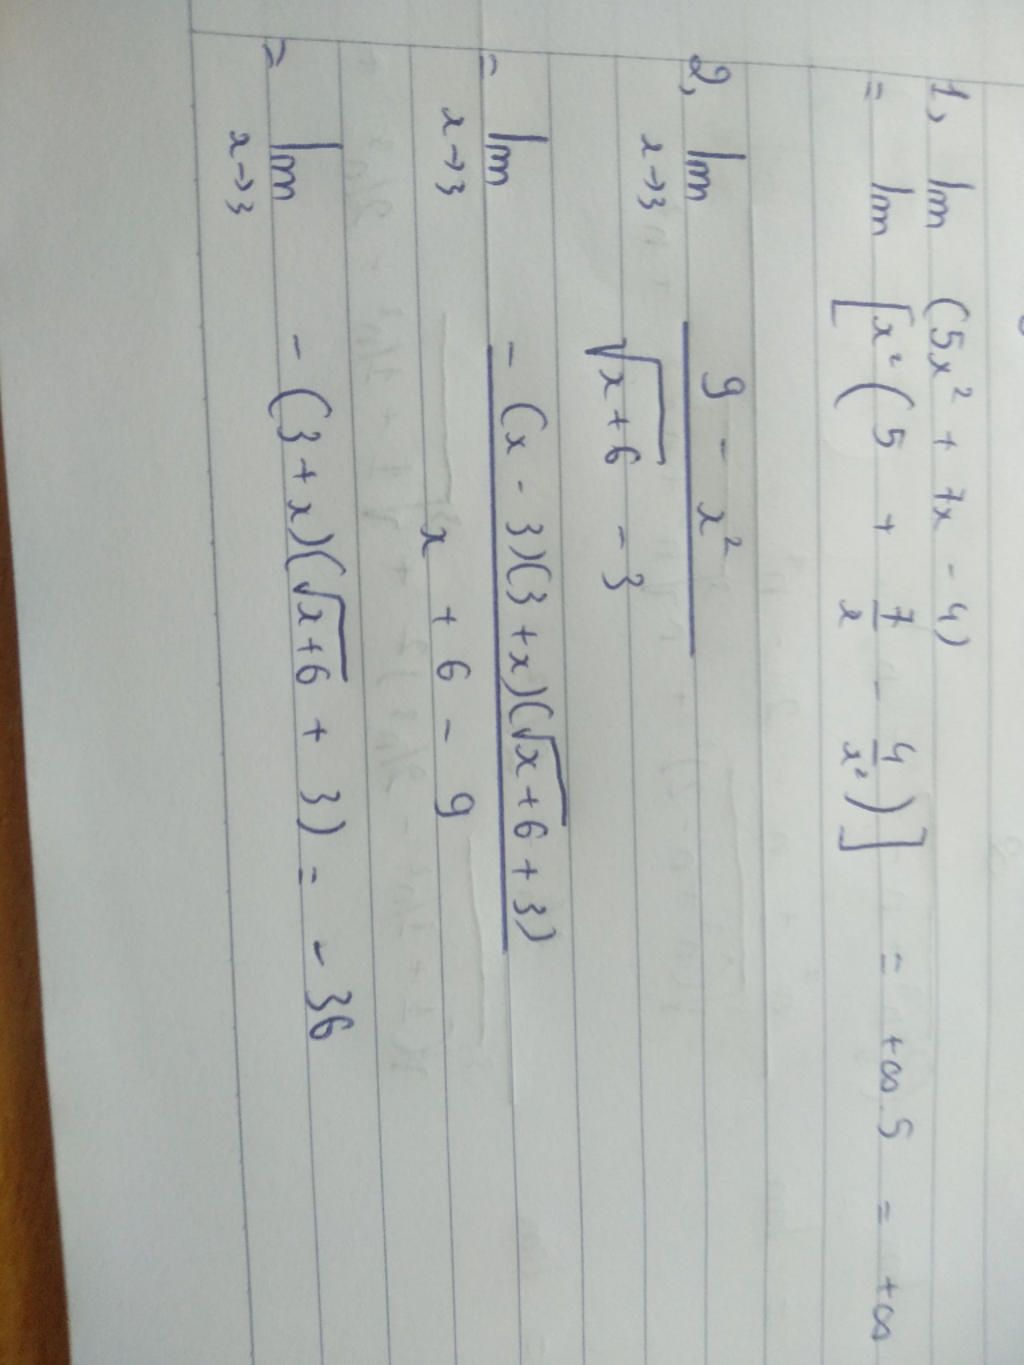 1, lim (5x² + 7x - 4)
= lim [x² (5 + 7/x - 4/x²)] = +∞.5 = +∞
2, lim 9 - x²
x→3 √x+6 - 3
= lim - (x - 3)(3 + x)(√x+6 + 3)
x→3 x + 6 - 9
= lim - (3 + x)(√x+6 + 3) = - 36
x→3